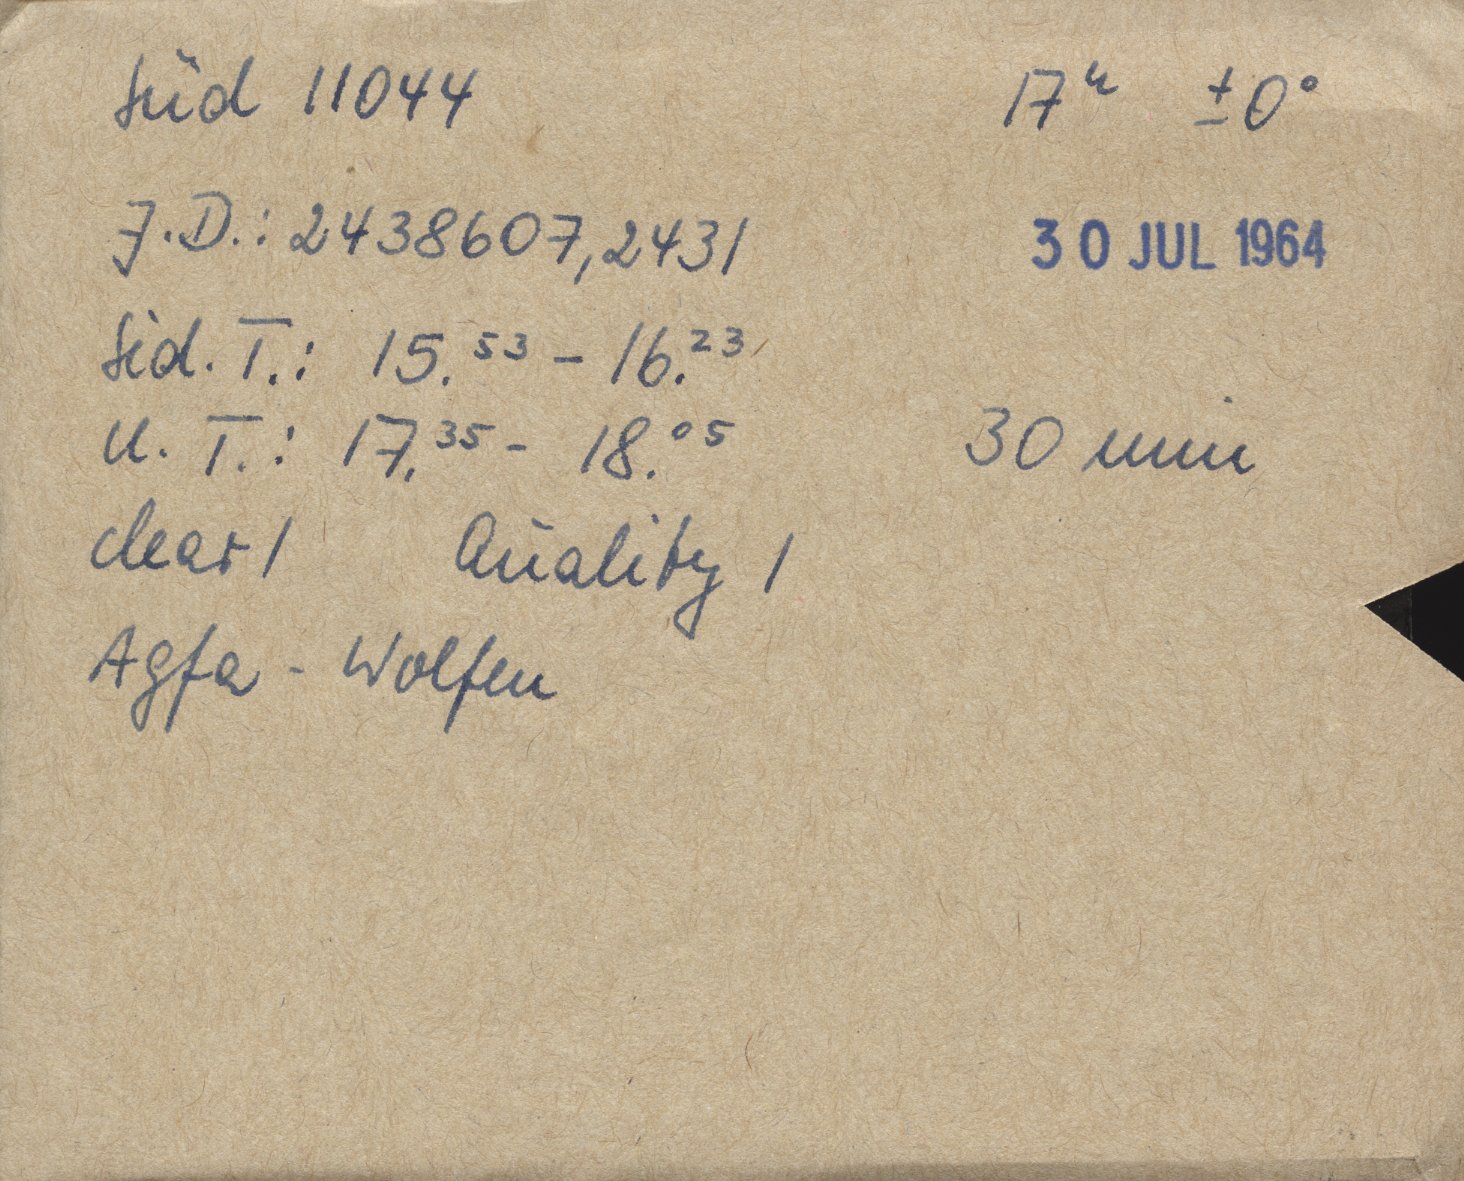 Süd 11044 17ʰ ±0°
J.D.: 2438607,2431 30 JUL 1964
Sid. T.: 15.⁵³ - 16.²³
U. T.: 17.³⁵ - 18.⁰⁵ 30 min
clear 1 Quality 1
Agfa - Wolfen